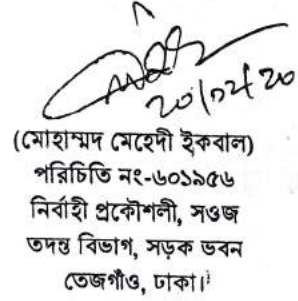 ২০/১২/২০
(মোহাম্মদ মেহেদী ইকবাল)
পরিচিতি নং-৬০১৯৫৬
নির্বাহী প্রকৌশলী, সওজ
তদন্ত বিভাগ, সড়ক ভবন
তেজগাঁও, ঢাকা।